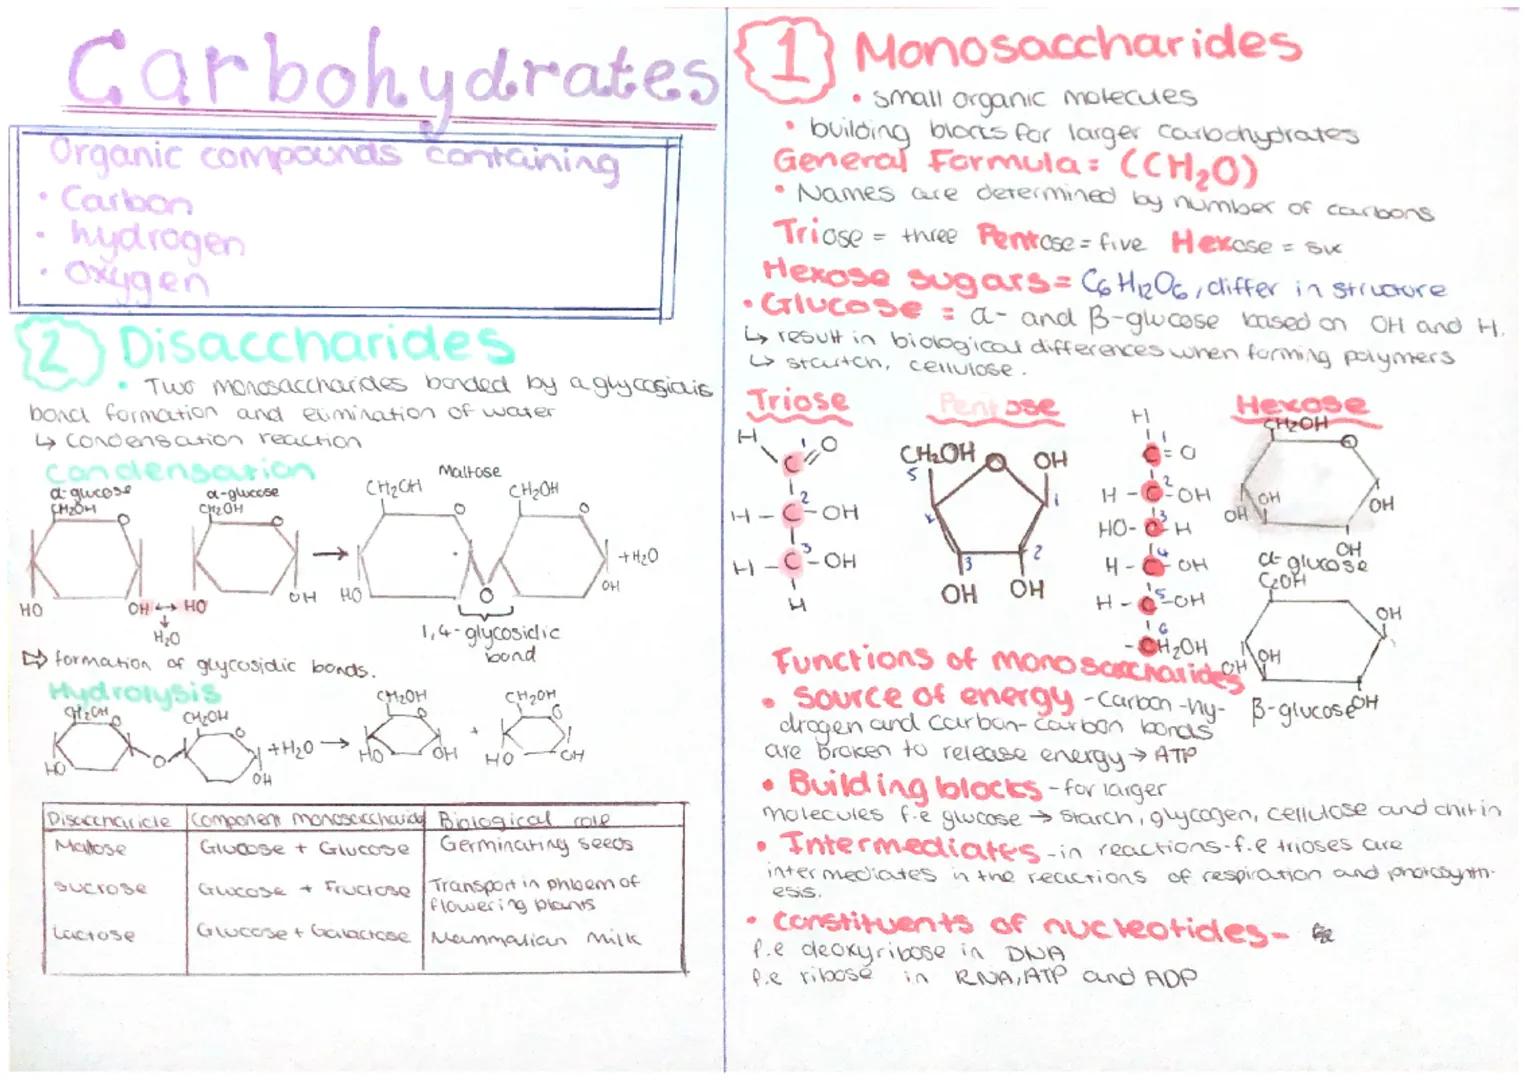 Carbohydrates
Organic compounds containing
• Carbon
• hydrogen
• oxygen
1 Monosaccharides
• small organic molecules
• building blocks for larger carbohydrates
General Formula = ((CH₂O)
• Names are determined by number of carbons
Triose = three Pentose = five Hexose = six
Hexose sugars = C₆H₁₂O₆, differ in structure
• Glucose = α- and β-glucose based on OH and H.
↳ result in biological differences when forming polymers
↳ startch, cellulose.
Triose
H
C
O
H - C - OH
2
H - C - OH
3
H
Pentose
CH₂OH
5
O
OH
1
2
3
OH OH
H
1
C = O
H - C - OH
2
HO - C - H
3
H - C - OH
4
H - C - OH
5
- CH₂OH
6
Hexose
CH₂OH
O
OH
OH
OH
OH
α-glucose
C₂OH
OH
OH
OH
OH
β-glucose
Functions of monosaccharides
• Source of energy - Carbon-hy-
drogen and carbon-carbon bonds
are broken to release energy → ATP
• Building blocks - for larger
molecules f.e glucose → starch, glycogen, cellulose and chitin
• Intermediates - in reactions - f.e trioses are
intermediates in the reactions of respiration and photosynth-
esis.
• constituents of nucleotides -
f.e deoxyribose in DNA
f.e ribose in RNA, ATP and ADP
2 Disaccharides
• Two monosaccharides bonded by a
bond formation and elimination of water
↳ condensation reaction
Condensation
α-glucose
CH₂OH
O
HO
OH ↔ HO
H₂O
α-glucose
CH₂OH
O
OH
→
Maltose
CH₂OH
O
HO
O
CH₂OH
O
OH
+ H₂O
1,4-glycosidic
bond
⇨ formation of glycosidic bonds.
Hydrolysis
CH₂OH
O
HO
O
CH₂OH
O
OH
+ H₂O →
CH₂OH
O
HO
OH
+
CH₂OH
O
HO
OH
Disaccharide Component monosaccharide Biological role
Maltose Glucose + Glucose Germinating seeds
sucrose Glucose + Fructose Transport in phloem of
flowering plants
Lactose Glucose + Galactose Mammalian Milk